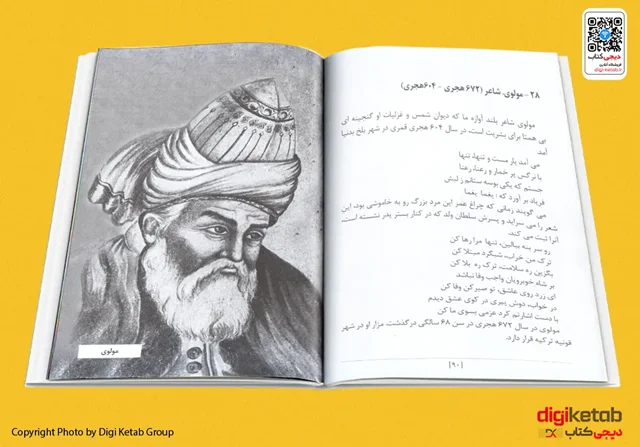 دیجی کتاب
فروشگاه آنلاین
digi-ketab.ir
۲۸ - مولوی. شاعر (۶۷۲ هجری - ۶۰۴هجری)
مولوی شاعر بلند آوازه ما که دیوان شمس و غزلیات او گنجینه ای
بی همتا برای بشریت است، در سال ۶۰۴ هجری قمری در شهر بلخ بدنیا
آمد
می آمد یار مست و تنها، تنها
با نرگس پر خمار و رعنا، رعنا
جستم که یکی بوسه ستانم ز لبش
فریاد بر آورد که: یغما یغما
می گویند زمانی که چراغ عمر این مرد بزرگ رو به خاموشی بود، این
شعر را می سراید و پسرش سلطان ولد که در کنار بستر پدر نشسته است،
آنرا ثبت می کند.
رو سر بنه ببالین، تنها مرا رها کن
ترک من خراب، شبگرد مبتلا کن
بگزین ره سلامت، ترک ره بلا کن
بر شاه خوبرویان واجب وفا نباشد
ای زرد روی عاشق، تو صبر کن وفا کن
در خواب، دوش پیری در کوی عشق دیدم
با دست اشارتم کرد عزمی بسوی ما کن
مولوی در سال ۶۷۲ هجری در سن ۶۸ سالگی درگذشت. مزار او در شهر
قونیه ترکیه قرار دارد.
[۹۰]
مولوی
digiketab
دیجی کتاب
Copyright Photo by Digi Ketab Group